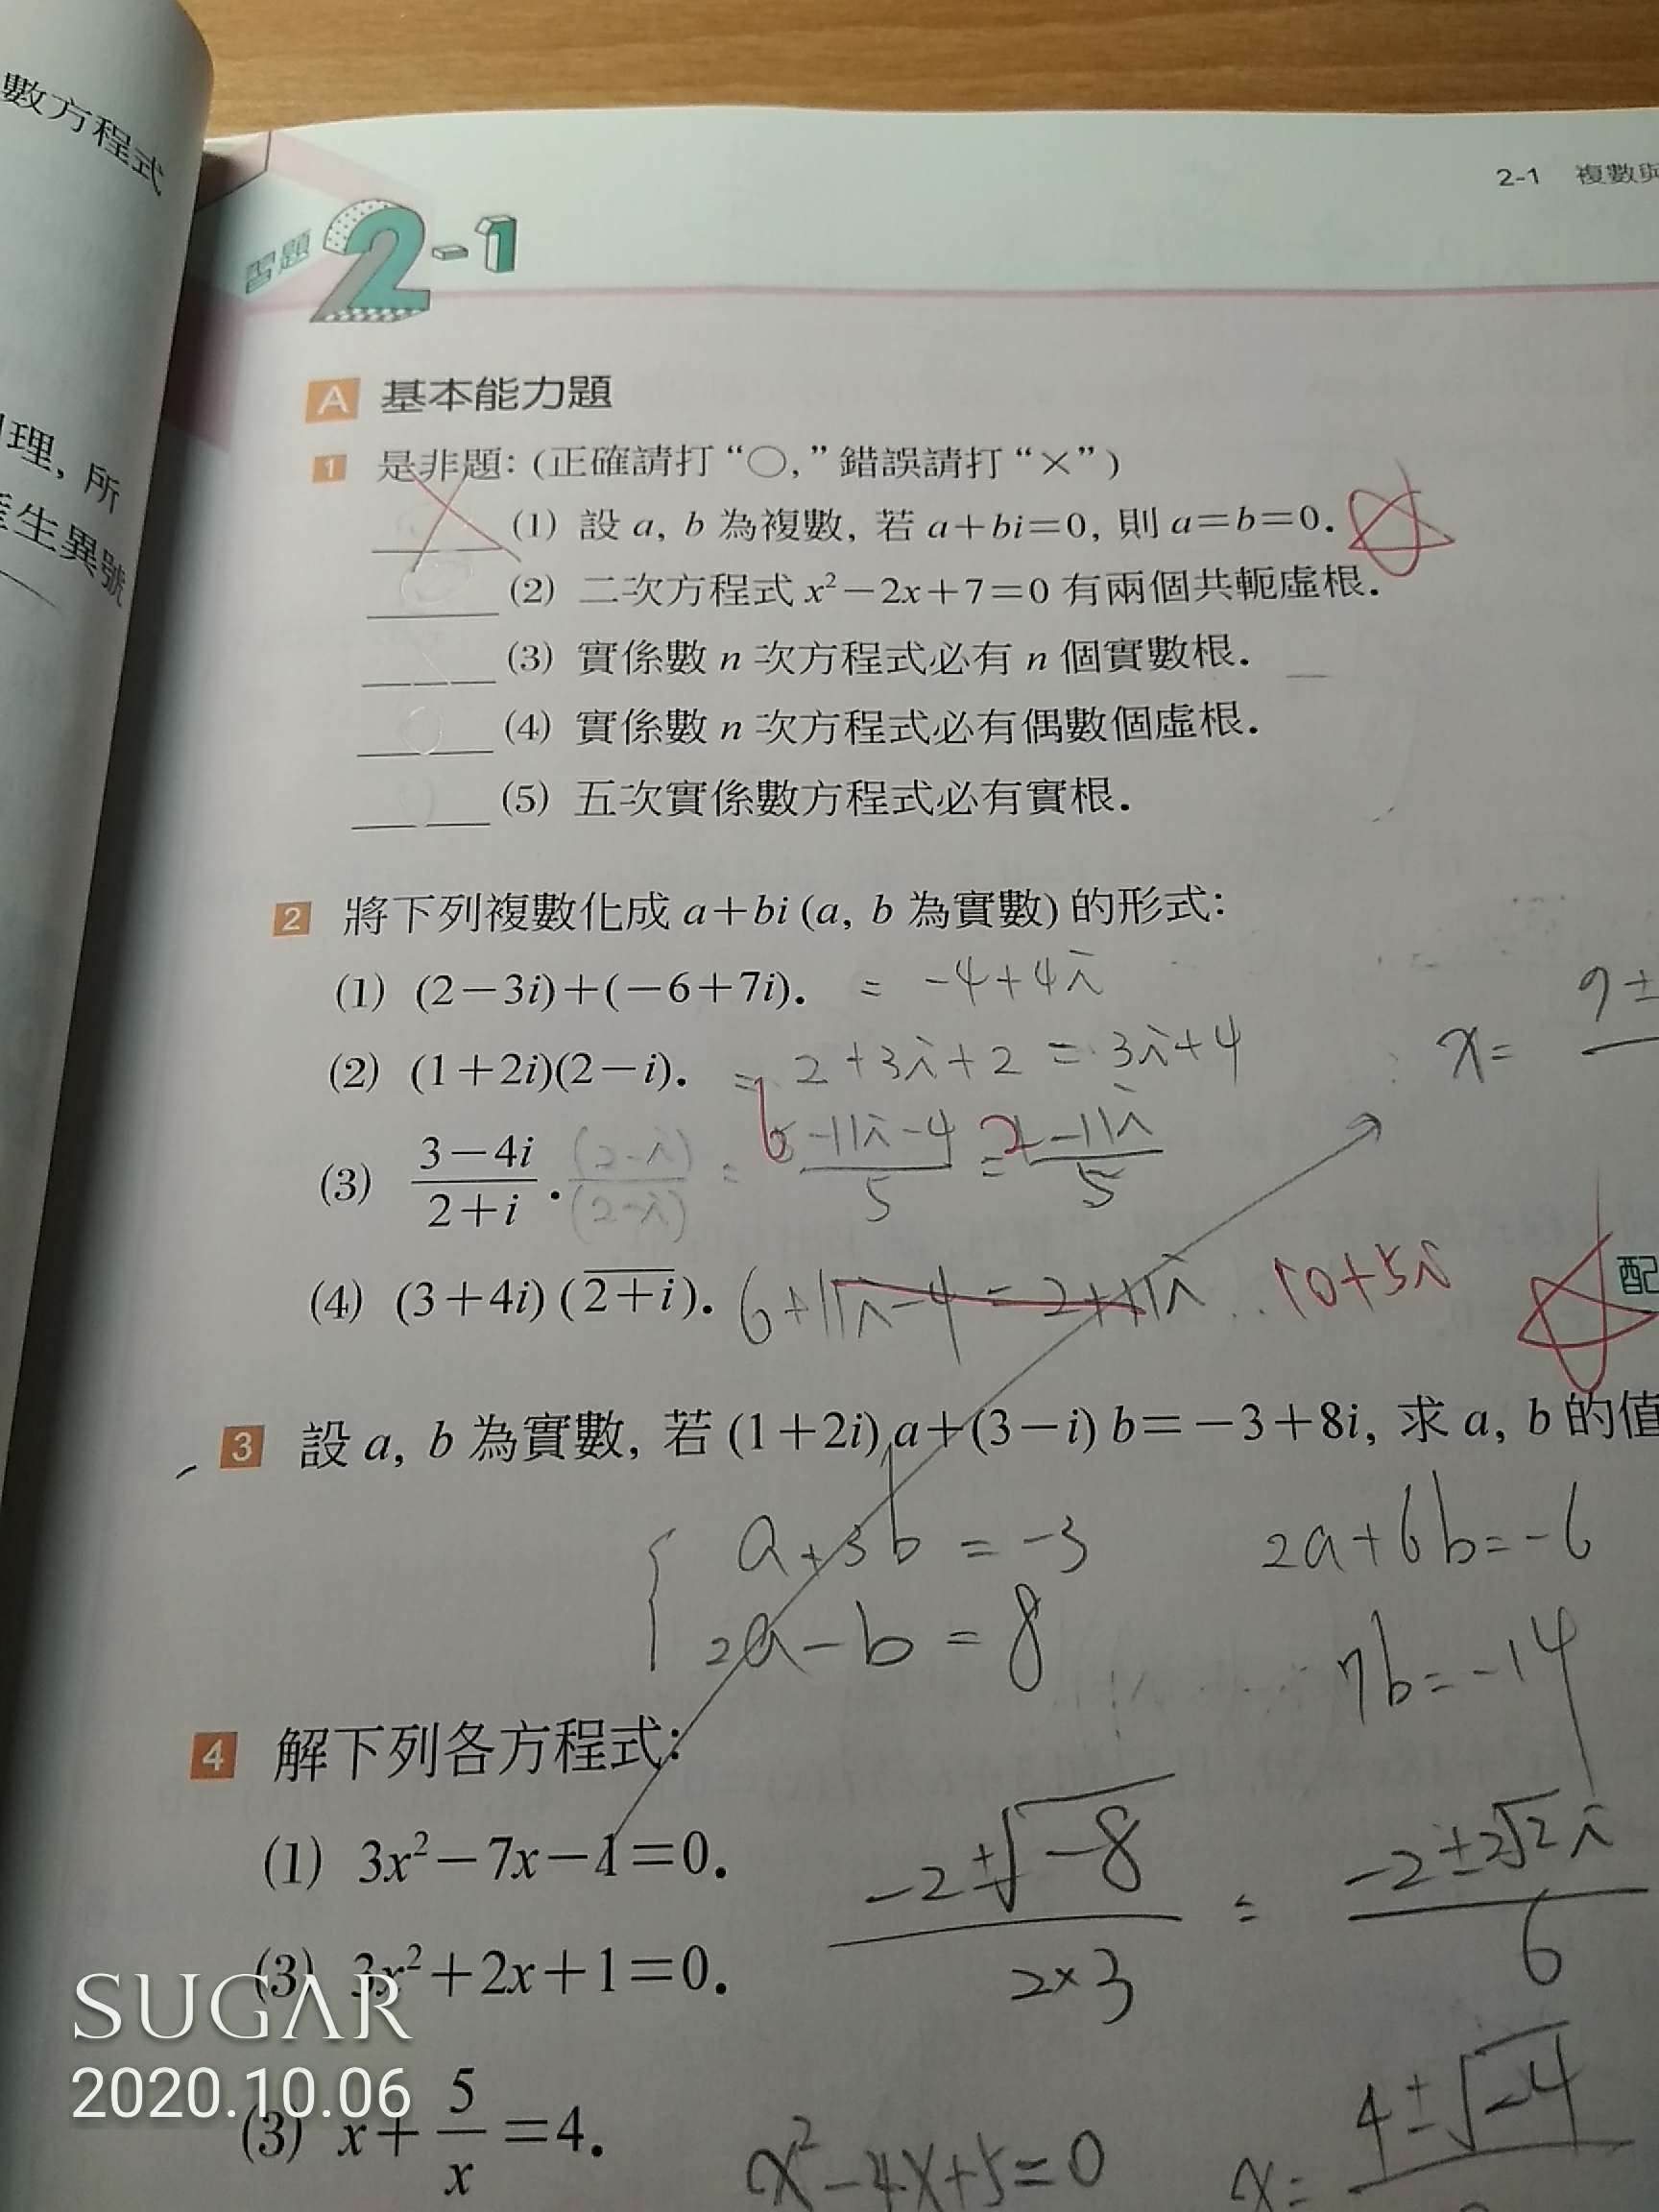 數方程式
理, 所
生異號
2-1 複數與
習題 2-1
A 基本能力題
1 是非題: (正確請打“○,”錯誤請打“×”)
(1) 設 a, b 為複數, 若 a+bi=0, 則 a=b=0.
(2) 二次方程式 x²-2x+7=0 有兩個共軛虛根.
(3) 實係數 n 次方程式必有 n 個實數根.
(4) 實係數 n 次方程式必有偶數個虛根.
(5) 五次實係數方程式必有實根.
2 將下列複數化成 a+bi (a, b 為實數) 的形式:
(1) (2-3i)+(-6+7i). = -4+4i
(2) (1+2i)(2-i). = 2+3i+2 = 3i+4
x= 9±
(3) (3-4i)/(2+i). (2-i)/(2-i) = (6-11i-4)/5 = (2-11i)/5
(4) (3+4i)(\overline{2+i}). 6+11i-4=2+11i 10+5i
配
3 設 a, b 為實數, 若 (1+2i)a+(3-i)b=-3+8i, 求 a, b 的值
a+3b=-3 2a+6b=-6
2a-b=8 7b=-14
4 解下列各方程式:
(1) 3x²-7x-1=0.
(-2±√-8)/(2×3) = (-2±2√2i)/6
(3) 3x²+2x+1=0.
(3) x+5/x=4.
x²-4x+5=0 x= 4±√-4
SUGAR
2020.10.06